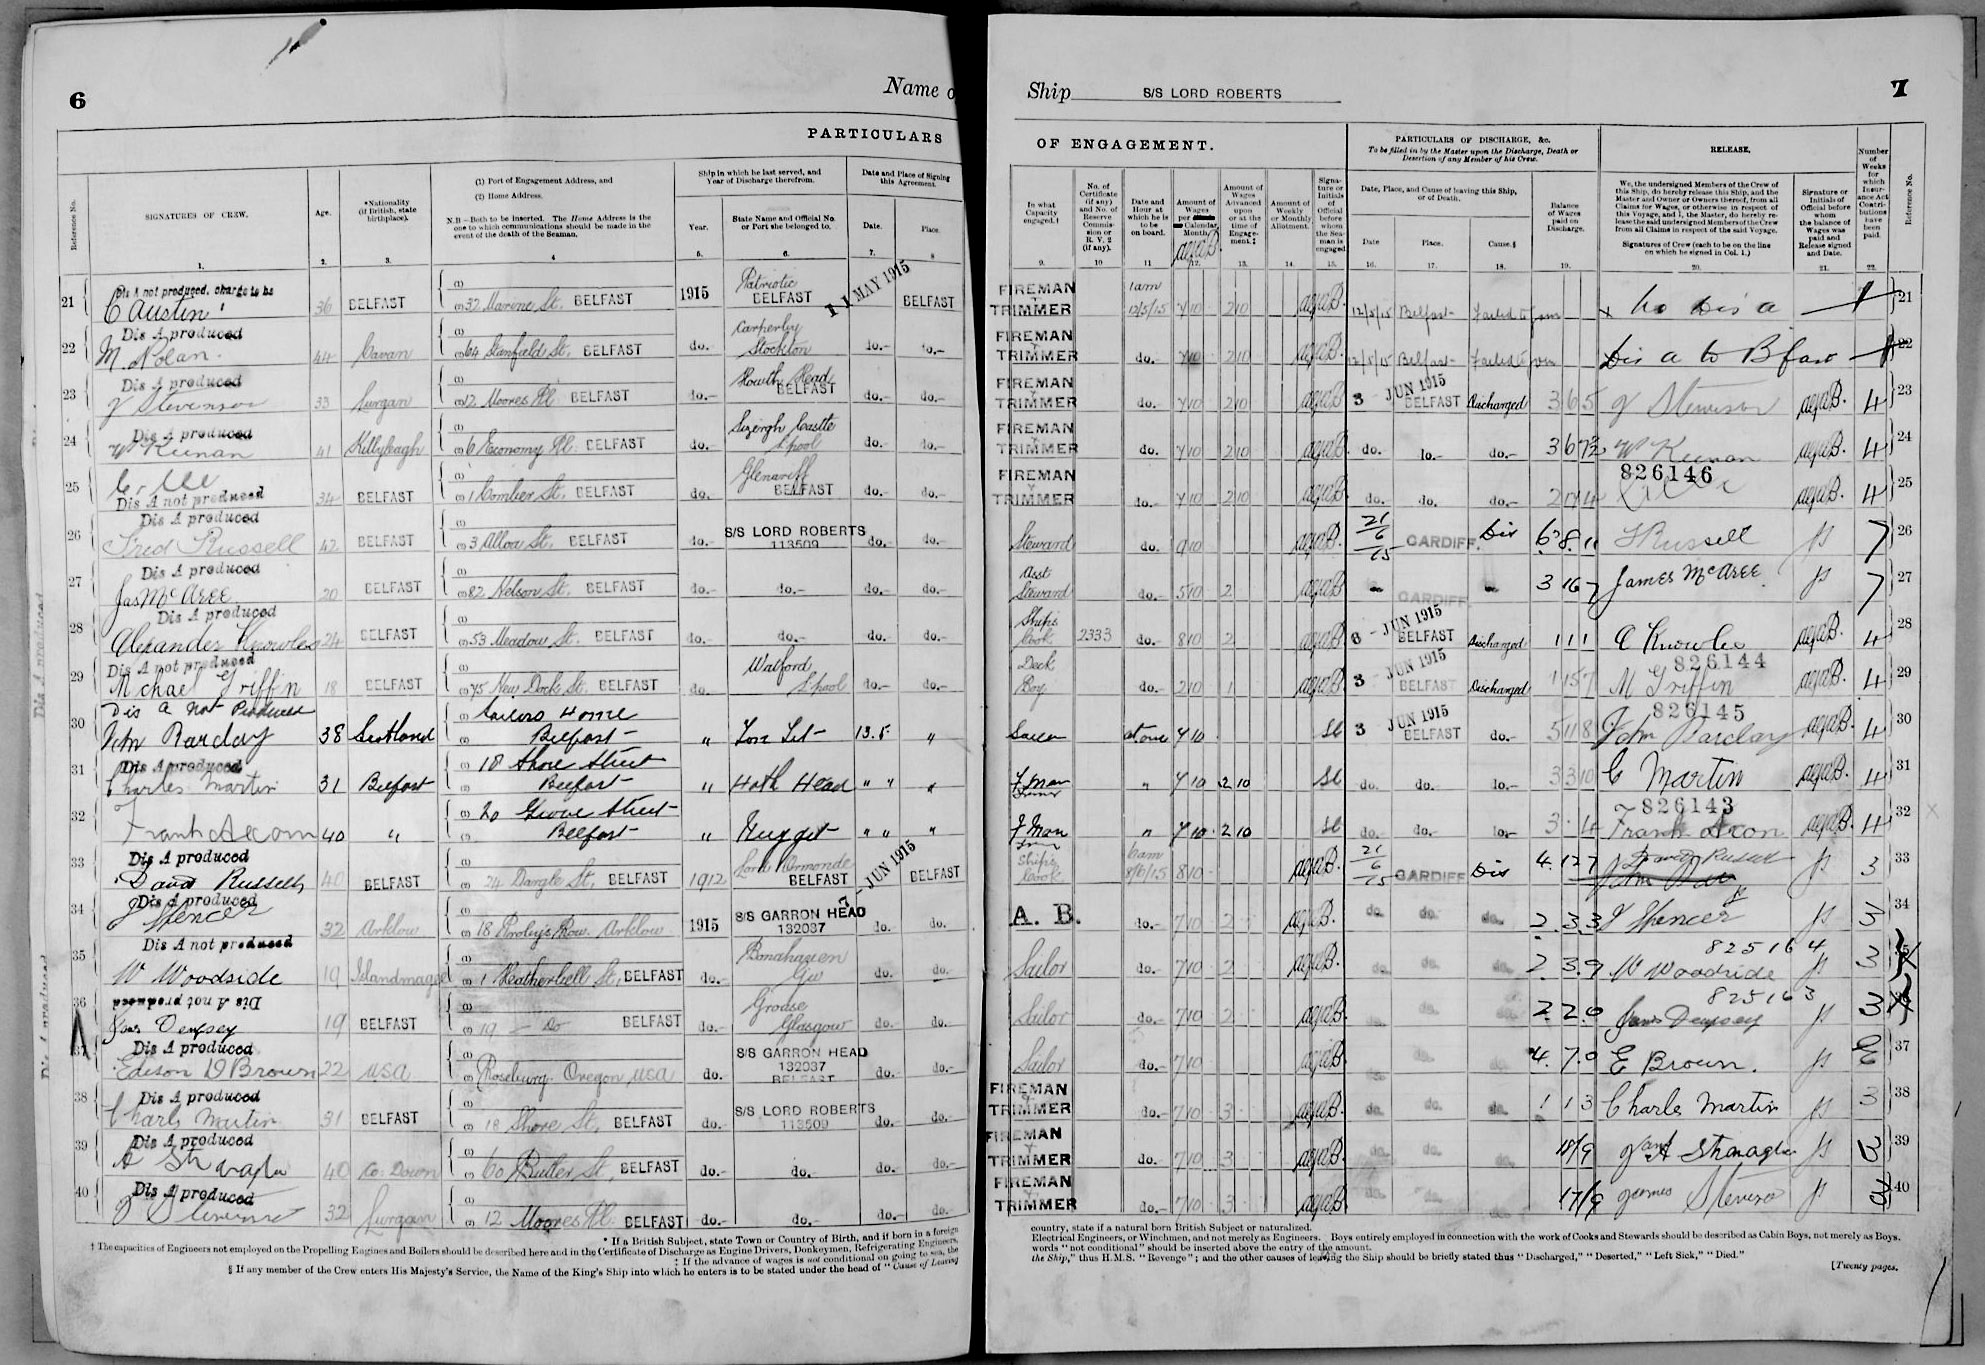 6
Name o
PARTICULARS
Reference No.
SIGNATURES OF CREW.
1.
Age.
2.
*Nationality
(if British, state
birthplace).
3.
(1) Port of Engagement Address, and
(2) Home Address.
N.B—Both to be inserted. The Home Address is the
one to which communications should be made in the
event of the death of the Seaman.
4
Ship in which he last served, and
Year of Discharge therefrom.
Year.
5.
State Name and Official No.
or Port she belonged to.
6.
Date and Place of Signing
this Agreement.
Date.
7.
Place.
8
21 Dis A not produced, charge to be
C Austin 36 BELFAST (1) (2) 32 Marine St. BELFAST 1915 Patriotic BELFAST 11 MAY 1915 BELFAST
22 Dis A produced
M. Nolan. 44 Cavan (1) (2) 64 Stanfield St. BELFAST do. Carperby Stockton do.- do.-
23 Dis A produced
J Stevenson 33 Lurgan (1) (2) 12 Moores Pl BELFAST do.- Howth Head BELFAST do.- do.-
24 Dis A produced
W Keenan 41 Killyleagh (1) (2) 6 Economy Pl. BELFAST do. Sizergh Castle L'pool do. do.-
25
Dis A not produced 34 BELFAST (1) (2) 1 Comber St. BELFAST do. Glenariff BELFAST do.- do.-
26 Dis A produced
Fred Russell 42 BELFAST (1) (2) 3 Alloa St. BELFAST do.- S/S LORD ROBERTS 113509 do.- do.
27 Dis A produced
Jas McAree 20 BELFAST (1) (2) 82 Nelson St. BELFAST do.- do.- do.- do.-
28 Dis A produced
Alexander Knowles 24 BELFAST (1) (2) 53 Meadow St. BELFAST do.- do.- do.- do.-
29 Dis A not produced
Michael Griffin 18 BELFAST (1) (2) 75 New Dock St. BELFAST do. Watford L'pool do.- do.-
30 Dis A not Produced
John Barclay 38 Scotland (1) Sailors Home (2) Belfast " 13.5 "
31 Dis A produced
Charles Martin 31 Belfast (1) 18 Shore Street (2) Belfast " Hoth Head " " "
32
Frank Acorn 40 " (1) 20 Grove Street (2) Belfast " Nugget " " "
33 Dis A produced
David Russell 40 BELFAST (1) (2) 24 Dargle St. BELFAST 1912 Lord Ormonde BELFAST 7 - JUN 1915 BELFAST
34 Dis A produced
J Spencer 32 Arklow (1) (2) 18 Row. Arklow 1915 S/S GARRON HEAD 132037 do. do.
35 Dis A not produced
W Woodside 19 Islandmagee (1) (2) 1 Heatherbell St, BELFAST do. do. do.
36 Dis A not produced
Jas Dempsey 19 BELFAST (1) (2) 19 - do BELFAST do. Grouse Glasgow do. do.
37 Dis A produced
Edison D Brown 22 USA (1) (2) Roseburg. Oregon USA do. S/S GARRON HEAD 132037 BELFAST do. do.
38 Dis A produced
Charls Martin 31 BELFAST (1) (2) 18 Shore St, BELFAST do. S/S LORD ROBERTS 113509 do.- do.-
39 Dis A produced
40 Co. Down (1) (2) 60 Butler St, BELFAST do.- do. do.- do.-
40 Dis A produced
J Stevenson 32 Lurgan (1) (2) 12 Moores Pl. BELFAST do.- do.- do.- do.-
* If a British Subject, state Town or Country of Birth, and if born in a foreign
† The capacities of Engineers not employed on the Propelling Engines and Boilers should be described here and in the Certificate of Discharge as Engine Drivers, Donkeymen, Refrigerating Engineers,
‡ If the advance of wages is not conditional on going to sea, the
§ If any member of the Crew enters His Majesty's Service, the Name of the King's Ship into which he enters is to be stated under the head of "Cause of Leaving
Ship S/S LORD ROBERTS
7
OF ENGAGEMENT.
In what
Capacity
engaged.†
9.
No. of
Certificate
(if any)
and No. of
Reserve
Commis-
sion or
R. V. 2
(if any).
10
Date and
Hour at
which he is
to be
on board.
11
Amount of
Wages
per
Calendar
Month.
12.
Amount of
Wages
Advanced
upon
or at the
time of
Engage-
ment.‡
13.
Amount of
Weekly
or Monthly
Allotment.
14.
Signa-
ture or
Initials
of
Official
before
whom
the Sea-
man is
engaged
15.
PARTICULARS OF DISCHARGE, &c.
To be filled in by the Master upon the Discharge, Death or
Desertion of any Member of his Crew.
Date, Place, and Cause of leaving this Ship,
or of Death.
Date
16.
Place.
17.
Cause.§
18.
Balance
of Wages
paid on
Discharge.
19.
RELEASE,
We, the undersigned Members of the Crew of
this Ship, do hereby release this Ship, and the
Master and Owner or Owners thereof, from all
Claims for Wages, or otherwise in respect of
this Voyage, and I, the Master, do hereby re-
lease the said undersigned Members of the Crew
from all Claims in respect of the said Voyage.
Signatures of Crew (each to be on the line
on which he signed in Col. 1.)
20.
Signature or
Initials of
Official before
whom
the balance of
Wages was
paid and
Release signed
and Date.
21.
Number
of
Weeks
for
which
Insur-
ance Act
Contri-
butions
have
been
paid.
22.
Reference No.
FIREMAN + TRIMMER 1am 12/5/15 7 10 2 10 12/5/15 Belfast Failed to join x No Dis A 21
FIREMAN + TRIMMER do. 7 10 2 10 12/5/15 Belfast Failed to join Dis A to Bfast 22
FIREMAN + TRIMMER do. 7 10 2 10 3 JUN 1915 BELFAST Discharged 3 6 5 J Stevenson 4 23
FIREMAN + TRIMMER do. 7 10 2 10 do. do.- do- 3 6 7½ W Keenan 4 24
FIREMAN + TRIMMER do. 7 10 2 10 do- do. do.- 826146 4 25
Steward do. 9 10 21/6/15 CARDIFF. Dis 6 8 11 F Russell JS 7 26
Asst Steward do.- 5 10 2 " CARDIFF. " 3 16 7 James McAree JS 7 27
Ships Cook 2333 do. 8 10 2 6 - JUN 1915 BELFAST Discharged 1 1 1 A Knowles 4 28
Deck Boy do.- 2 10 1 3 - JUN 1915 BELFAST Discharged 1 15 7 826144 M Griffin 4 29
Sailor at once 7 10 3 JUN 1915 BELFAST do.- 5 11 8 826145 John Barclay 4 30
F man Trimr " 7 10 2 10 do. do. do- 3 3 10 C Martin 4 31
F Man Trimr " 7 10 2 10 do.- do.- do- 826143 Frank Acorn 4 32
Ships Cook 6am 8/6/15 8 10 21/6/15 CARDIFF Dis 4. 12 7 David Russell JS 3 33
A. B. do.- 7 10 2 do. do. do. 2. 3. 3 J Spencer JS 3 34
Sailor do.- 7 10 2 do. do. do. 2 3. 9 825164 W Woodside JS 3 35
Sailor do.- 7 10 2 do. do. 2. 2. 0 825163 James Dempsey JS 3 36
Sailor do.- 7 10 do. do. 4. 7. 0 E Brown. JS 3 37
FIREMAN + TRIMMER do.- 7 10 3 do. do. do. 1 1 3 Charls Martin JS 3 38
FIREMAN + TRIMMER do.- 7 10 3 do. do. do. 18/9 JS 3 39
FIREMAN + TRIMMER do.- 7 10 3 do. do. do. 17/9 James Stevenson JS 3 40
country, state if a natural born British Subject or naturalized.
Electrical Engineers, or Winchmen, and not merely as Engineers. Boys entirely employed in connection with the work of Cooks and Stewards should be described as Cabin Boys, not merely as Boys.
words "not conditional" should be inserted above the entry of the amount.
the Ship," thus H.M.S. "Revenge"; and the other causes of leaving the Ship should be briefly stated thus "Discharged," "Deserted," "Left Sick," "Died."
[Twenty pages.